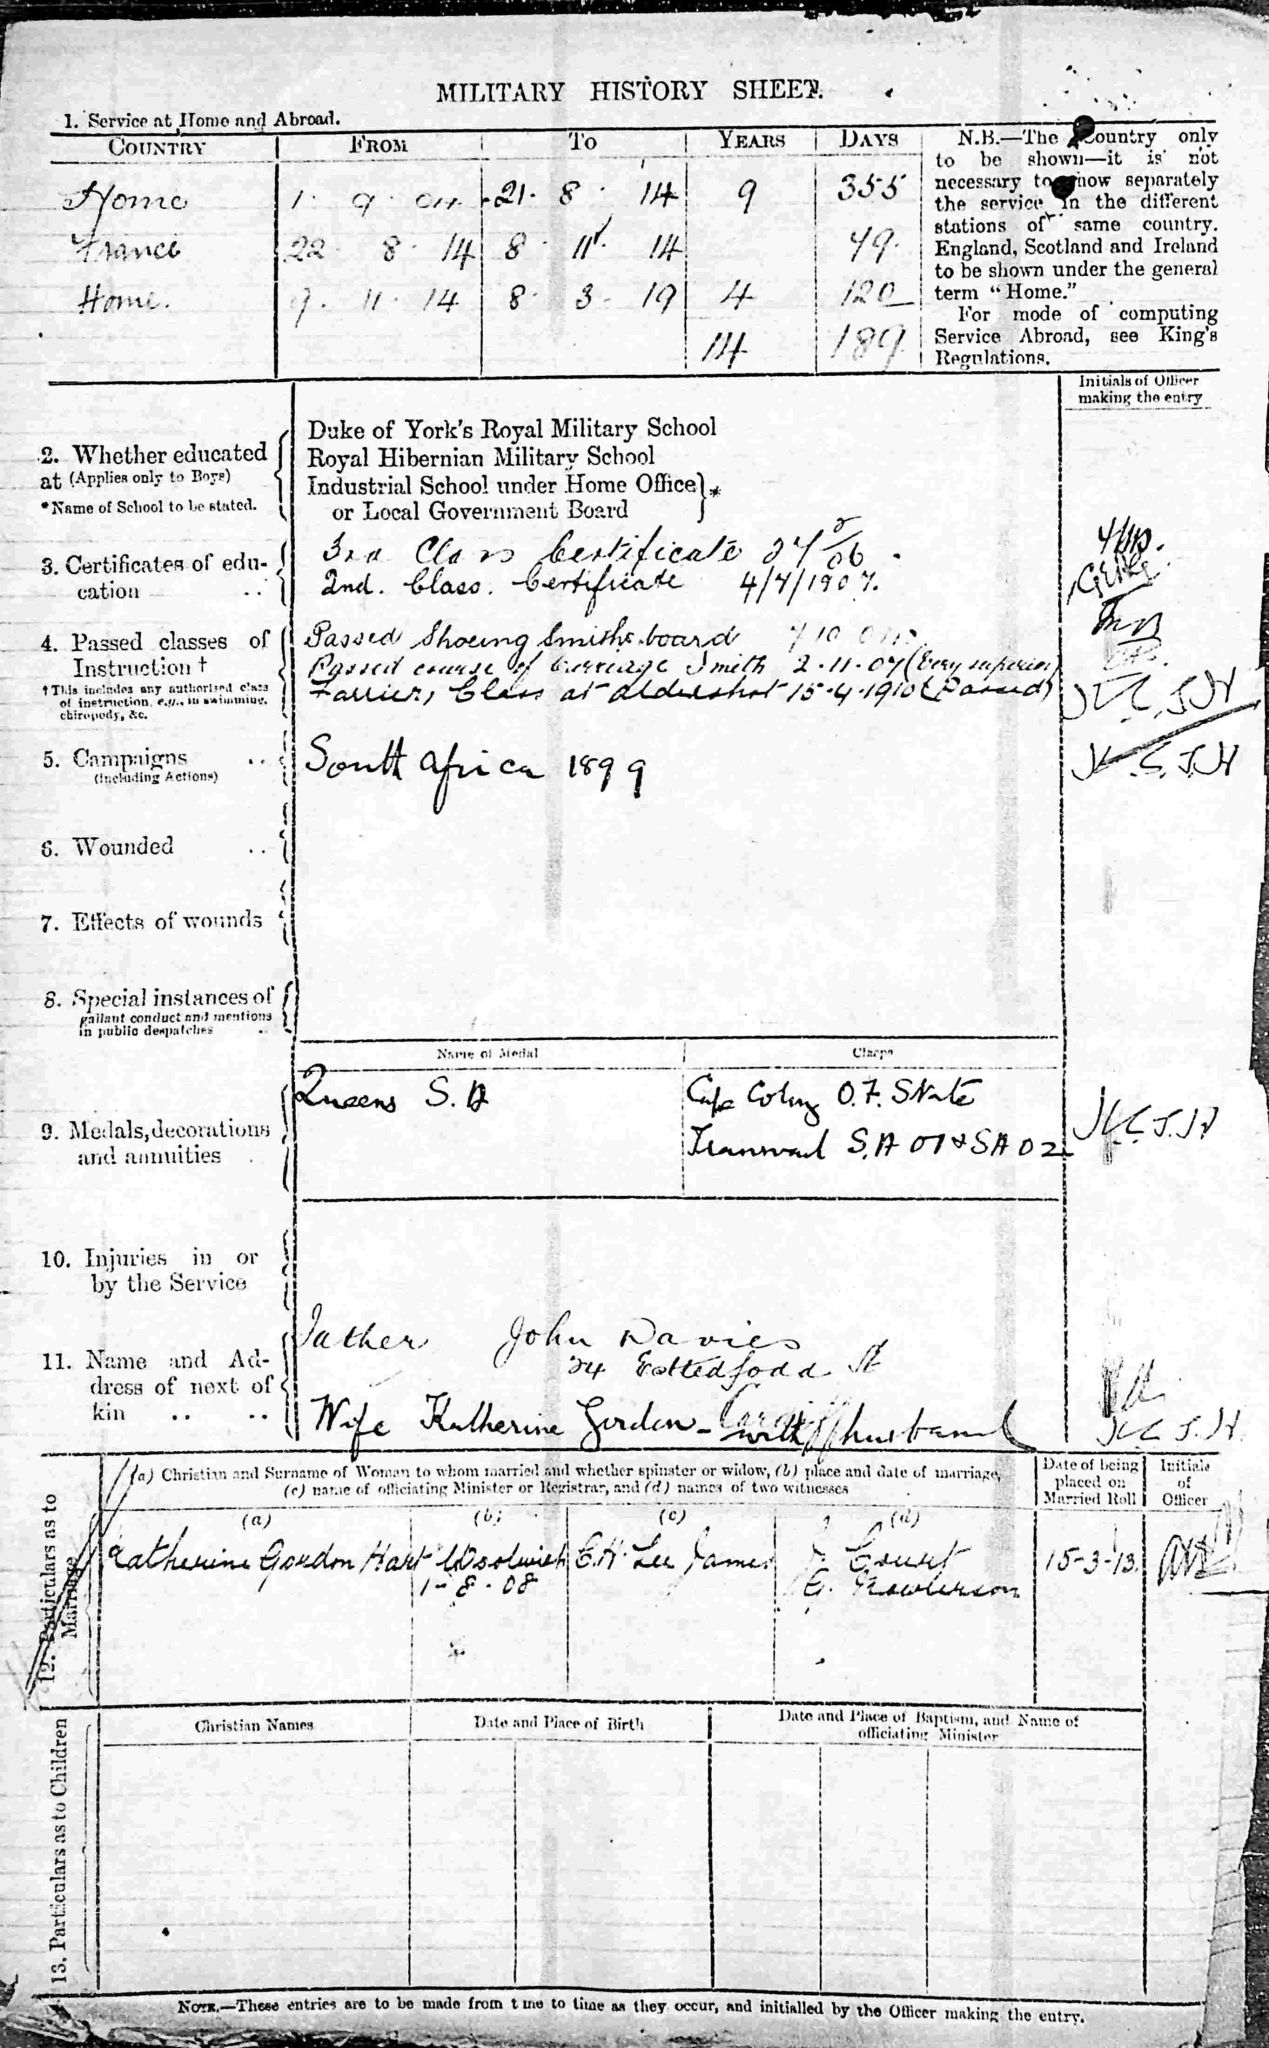 MILITARY HISTORY SHEET.
1. Service at Home and Abroad.
COUNTRY FROM TO YEARS DAYS
Home 1. 9. 04 21. 8. 14 9 355
France 22 8 14 8 11 14 79.
Home. 9. 11. 14 8. 3. 19 4 120
14 189
N.B.—The Country only
to be shown—it is not
necessary to show separately
the service in the different
stations of same country.
England, Scotland and Ireland
to be shown under the general
term "Home."
For mode of computing
Service Abroad, see King's
Regulations.
Initials of Officer
making the entry
2. Whether educated
at (Applies only to Boys)
*Name of School to be stated.
Duke of York's Royal Military School
Royal Hibernian Military School
Industrial School under Home Office
or Local Government Board
*
3. Certificates of edu-
cation ..
3rd Class Certificate
2nd. Class. Certificate 4/7/1907.
4. Passed classes of
Instruction †
† This includes any authorised class
of instruction, e.g., in swimming,
chiropody, &c.
Passed Shoeing Smiths board
Passed course of Carriage Smith 2.11.07 (Very superior)
Farriers Class at Aldershot 15.4.1910 (Passed)
JLC, JH
5. Campaigns ..
(including Actions)
South Africa 1899
6. Wounded ..
7. Effects of wounds
8. Special instances of
gallant conduct and mentions
in public despatches ..
Name of Medal Clasps
9. Medals, decorations
and annuities .
Queens S.A Cape Colony O.F. State
Transvaal S.A 01 & SA 02
10. Injuries in or
by the Service
11. Name and Ad-
dress of next of
kin .. ..
Father John Davies
24 St
Cardiff
Wife Katherine Gordon – with husband
12. Particulars as to
Marriage
(a) Christian and Surname of Woman to whom married and whether spinster or widow, (b) place and date of marriage,
(c) name of officiating Minister or Registrar, and (d) names of two witnesses
Date of being
placed on
Married Roll
Initials
of
Officer
(a) (b) (c) (d)
Katherine Gordon Hart Woolwich C.H. Lee James J. Court 15-3-13.
1-8-08 G.
13. Particulars as to Children
Christian Names Date and Place of Birth Date and Place of Baptism, and Name of
officiating Minister
NOTE.—These entries are to be made from time to time as they occur, and initialled by the Officer making the entry.